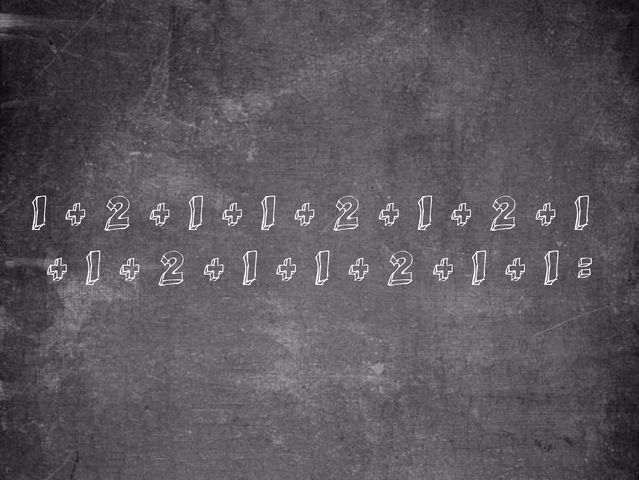 1 + 2 + 1 + 1 + 2 + 1 + 2 + 1
+ 1 + 2 + 1 + 1 + 2 + 1 + 1 =